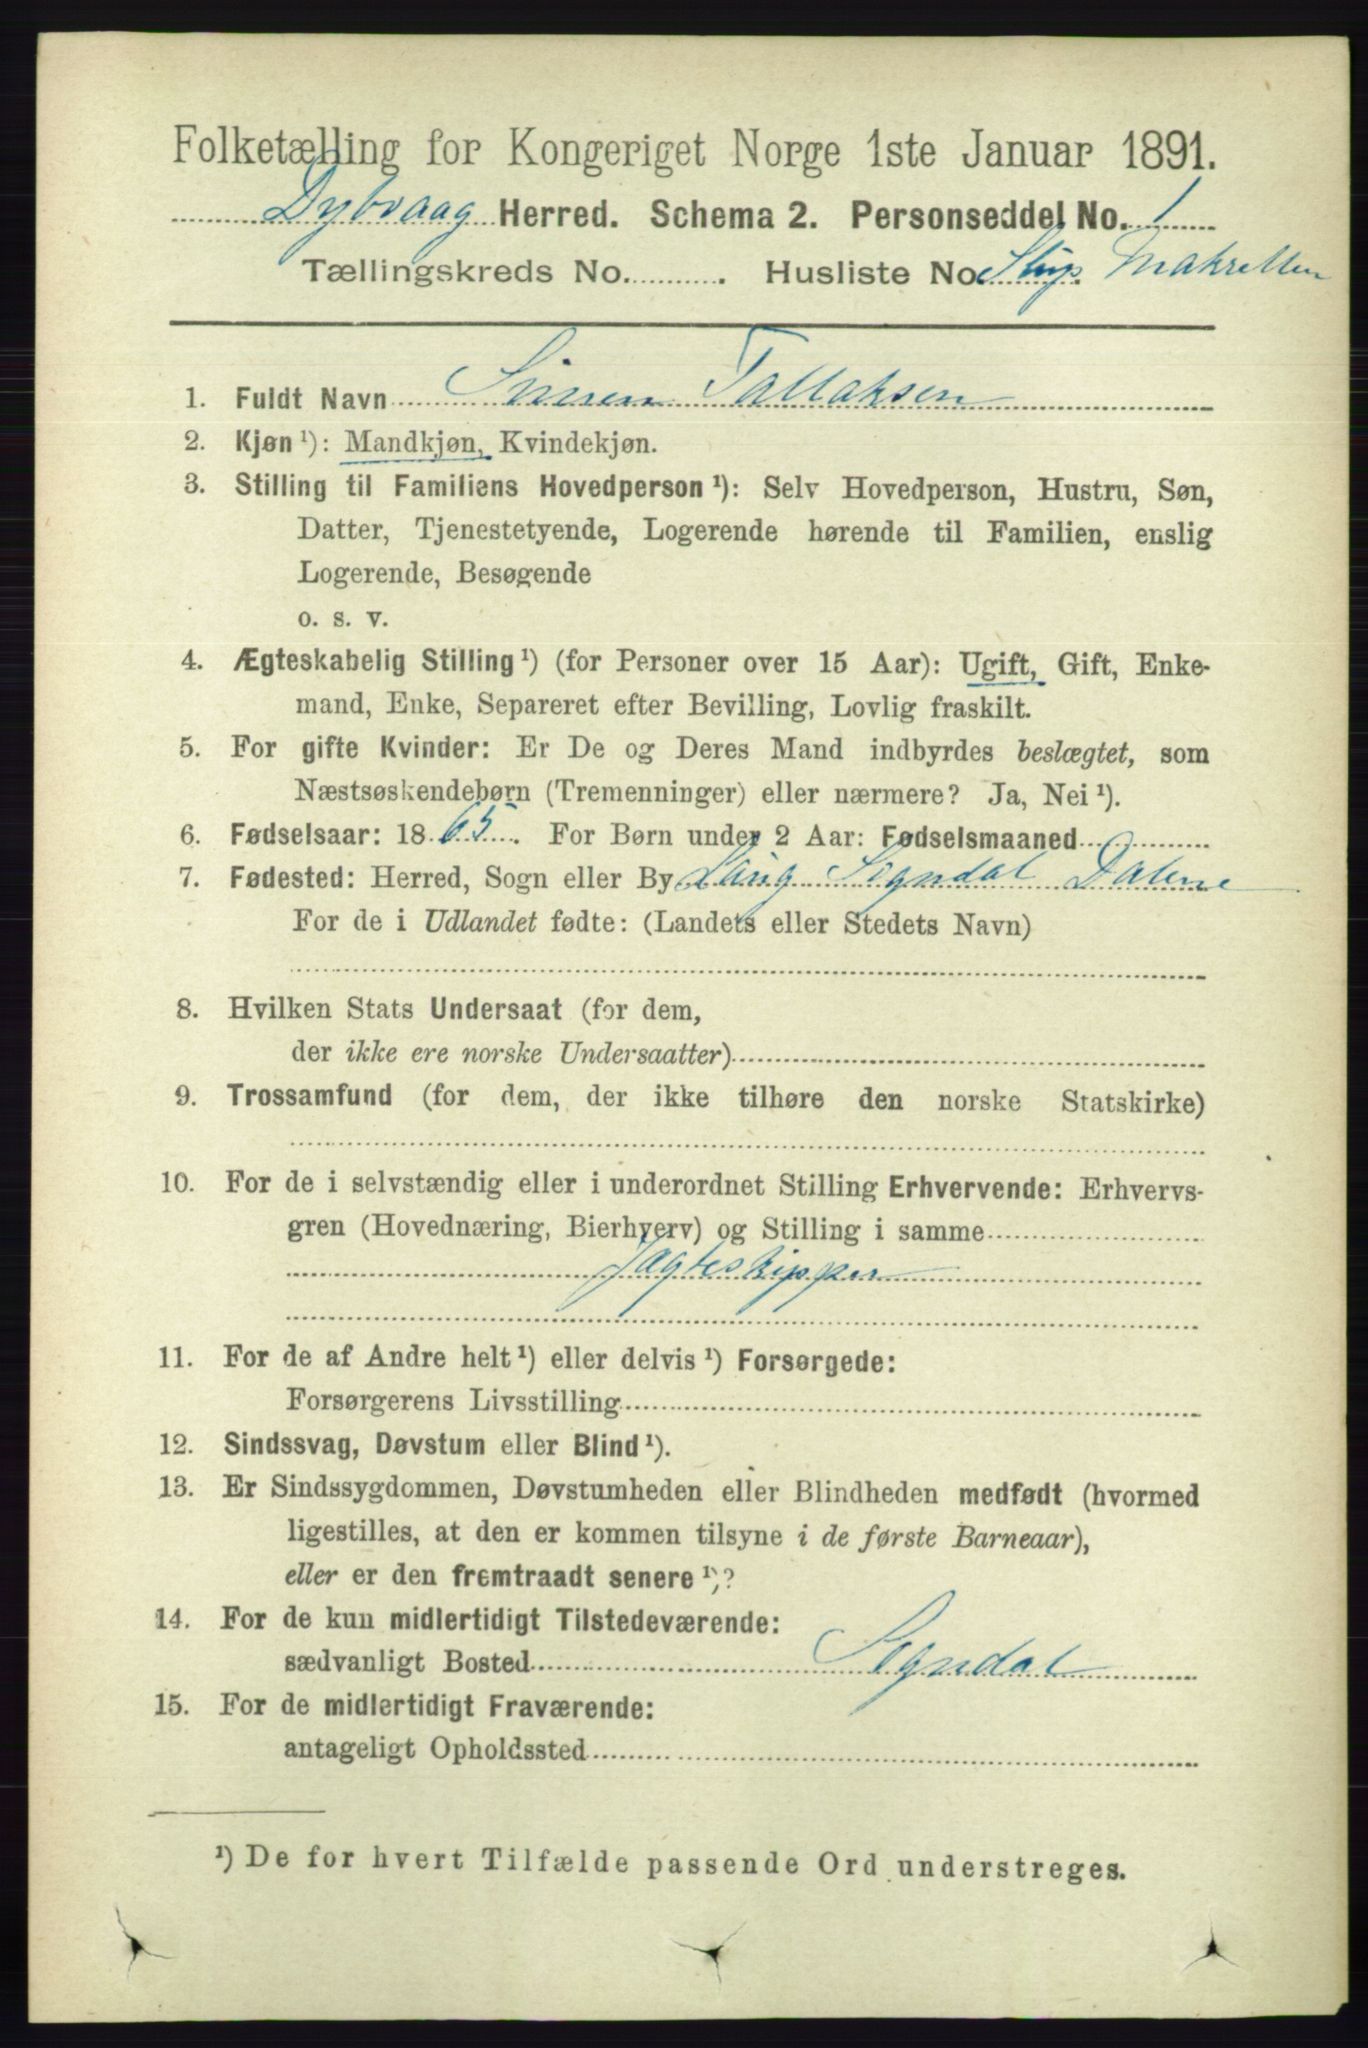 Folketælling for Kongeriget Norge 1ste Januar 1891.
Dybvaag Herred. Schema 2. Personseddel No. 1
Tællingskreds No. . Husliste No. Skip Makrellen
1. Fuldt Navn Simen Tallaksen
2. Kjøn ¹): Mandkjøn, Kvindekjøn.
3. Stilling til Familiens Hovedperson ¹): Selv Hovedperson, Hustru, Søn,
Datter, Tjenestetyende, Logerende hørende til Familien, enslig
Logerende, Besøgende
o. s. v.
4. Ægteskabelig Stilling ¹) (for Personer over 15 Aar): Ugift, Gift, Enke-
mand, Enke, Separeret efter Bevilling, Lovlig fraskilt.
5. For gifte Kvinder: Er De og Deres Mand indbyrdes beslægtet, som
Næstsøskendebørn (Tremenninger) eller nærmere? Ja, Nei ¹).
6. Fødselsaar: 1865. For Børn under 2 Aar: Fødselsmaaned
7. Fødested: Herred, Sogn eller By Sogndal Dalene
For de i Udlandet fødte: (Landets eller Stedets Navn)
8. Hvilken Stats Undersaat (for dem,
der ikke ere norske Undersaatter)
9. Trossamfund (for dem, der ikke tilhøre den norske Statskirke)
10. For de i selvstændig eller i underordnet Stilling Erhvervende: Erhvervs-
gren (Hovednæring, Bierhverv) og Stilling i samme
Jagteskipper
11. For de af Andre helt ¹) eller delvis ¹) Forsørgede:
Forsørgerens Livsstilling
12. Sindssvag, Døvstum eller Blind ¹).
13. Er Sindssygdommen, Døvstumheden eller Blindheden medfødt (hvormed
ligestilles, at den er kommen tilsyne i de første Barneaar),
eller er den fremtraadt senere ¹)?
14. For de kun midlertidigt Tilstedeværende:
sædvanligt Bosted Sogndal
15. For de midlertidigt Fraværende:
antageligt Opholdssted
¹) De for hvert Tilfælde passende Ord understreges.